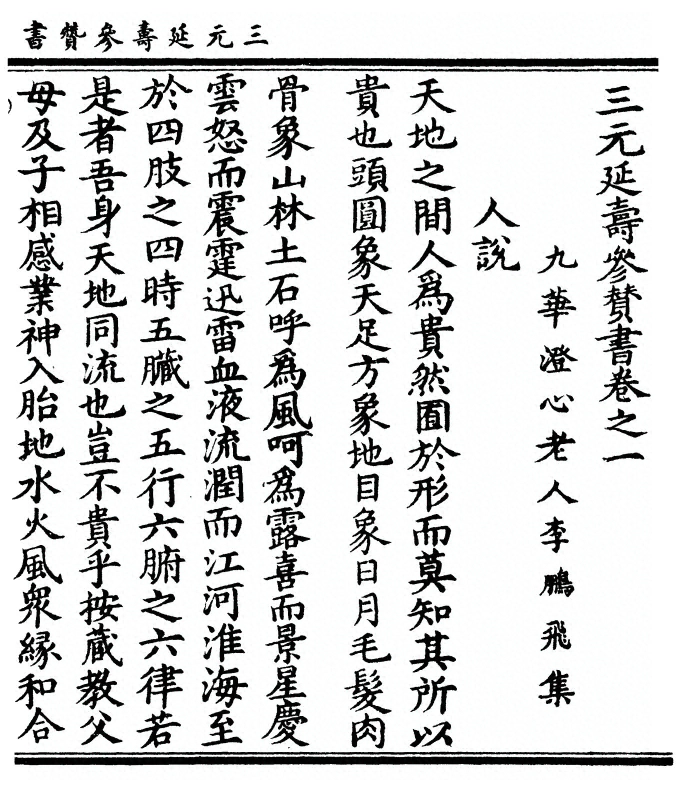 三元延壽參贊書
三元延壽參贊書卷之一
九華澄心老人李鵬飛集
人說
天地之間人爲貴然囿於形而莫知其所以
貴也頭圓象天足方象地目象日月毛髮肉
骨象山林土石呼爲風呵爲露喜而景星慶
雲怒而震霆迅雷血液流潤而江河淮海至
於四肢之四時五臟之五行六腑之六律若
是者吾身天地同流也豈不貴乎按藏教父
母及子相感業神入胎地水火風衆緣和合